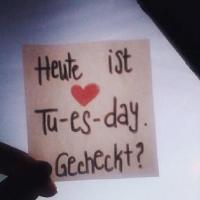 Heute ist
Tu-es-day.
Gecheckt?